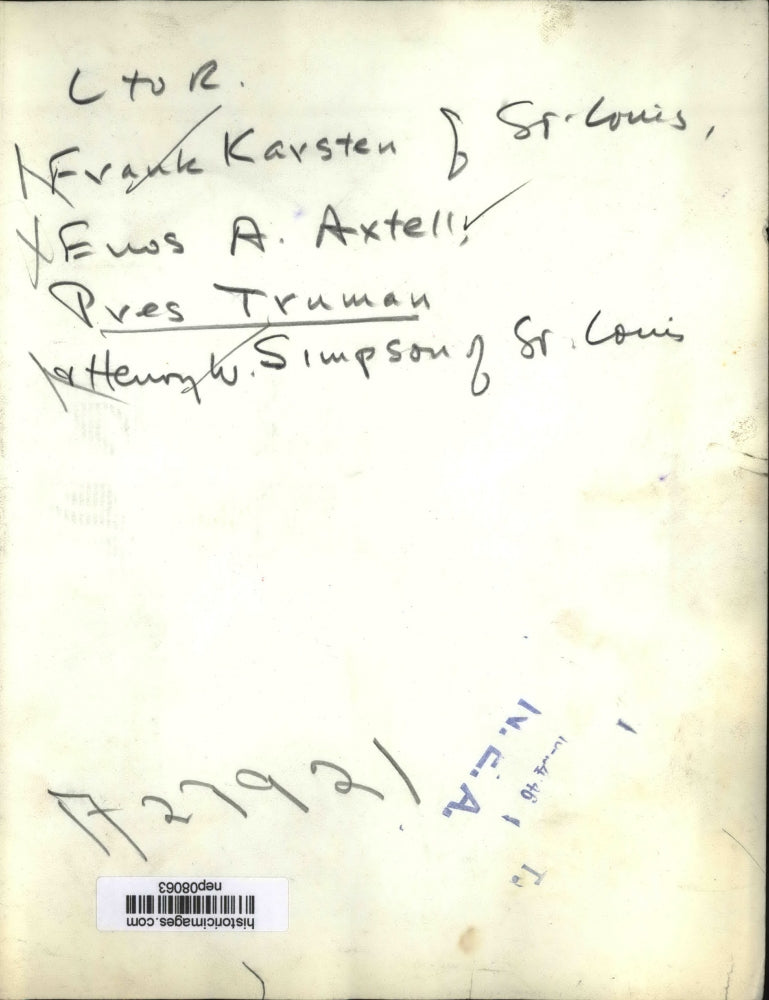 L to R.
Frank Karsten of St. Louis,
Enos A. Axtell,
Pres Truman
& Henry W. Simpson of St. Louis
N.E.A.
historicimages.com
nep08063